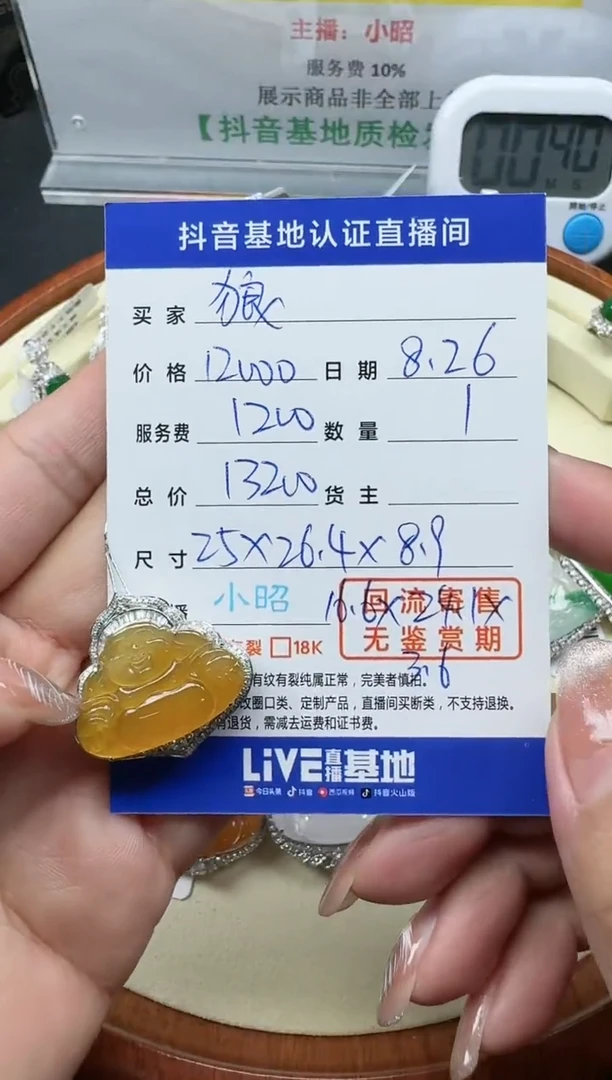 主播：小昭
服务费 10%
展示商品非全部上
【抖音基地质检
00 40
M S
開始/停止
抖音基地认证直播间
买家 狼
价格 12000 日期 8.26
服务费 1200 数量 1
总价 13200 货主
尺寸 25×26.4×8.9
小昭 回流寄售
裂 □18K 无鉴赏期
3.6
有纹有裂纯属正常，完美者慎拍。
改圈口类、定制产品，直播间买断类，不支持退换。
有退货，需减去运费和证书费。
LiVE直播基地
今日头条 抖音 西瓜视频 抖音火山版